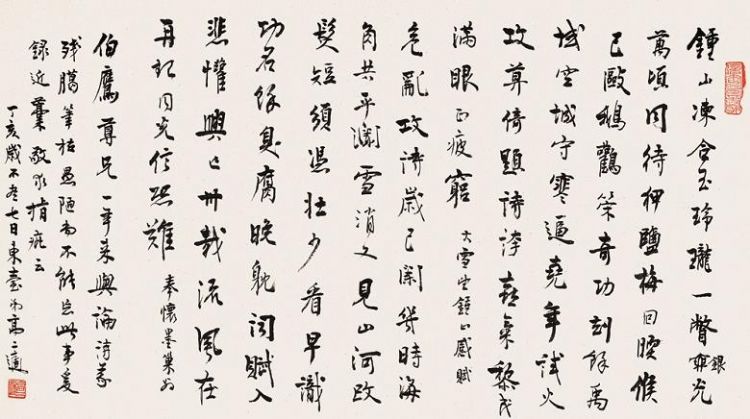 鍾山凍合玉玲瓏一瞥銀光
萬頃同待押鹽梅回暖候
已毆鵝鸛策奇功刻餘禹
域空城守寒逼堯年試火
攻尊倚題詩誇喜氣黎民
滿眼正疲窮 大雪登鍾山感賦
危亂攻詩歲已闌幾時海
角共平瀾雪消又見山河改
髮短須憑壯少看早識
功名餘臭腐晚耽詞賦入
悲懽興亡卅載流風在
再起同光信恐難 奉懷墨巢翁
伯鷹尊兄一年来與論詩
殘臘筆枯愚陋而不能忘此事爰
録近藁敬求指疵云
丁亥歲不盡七日東臺高二適